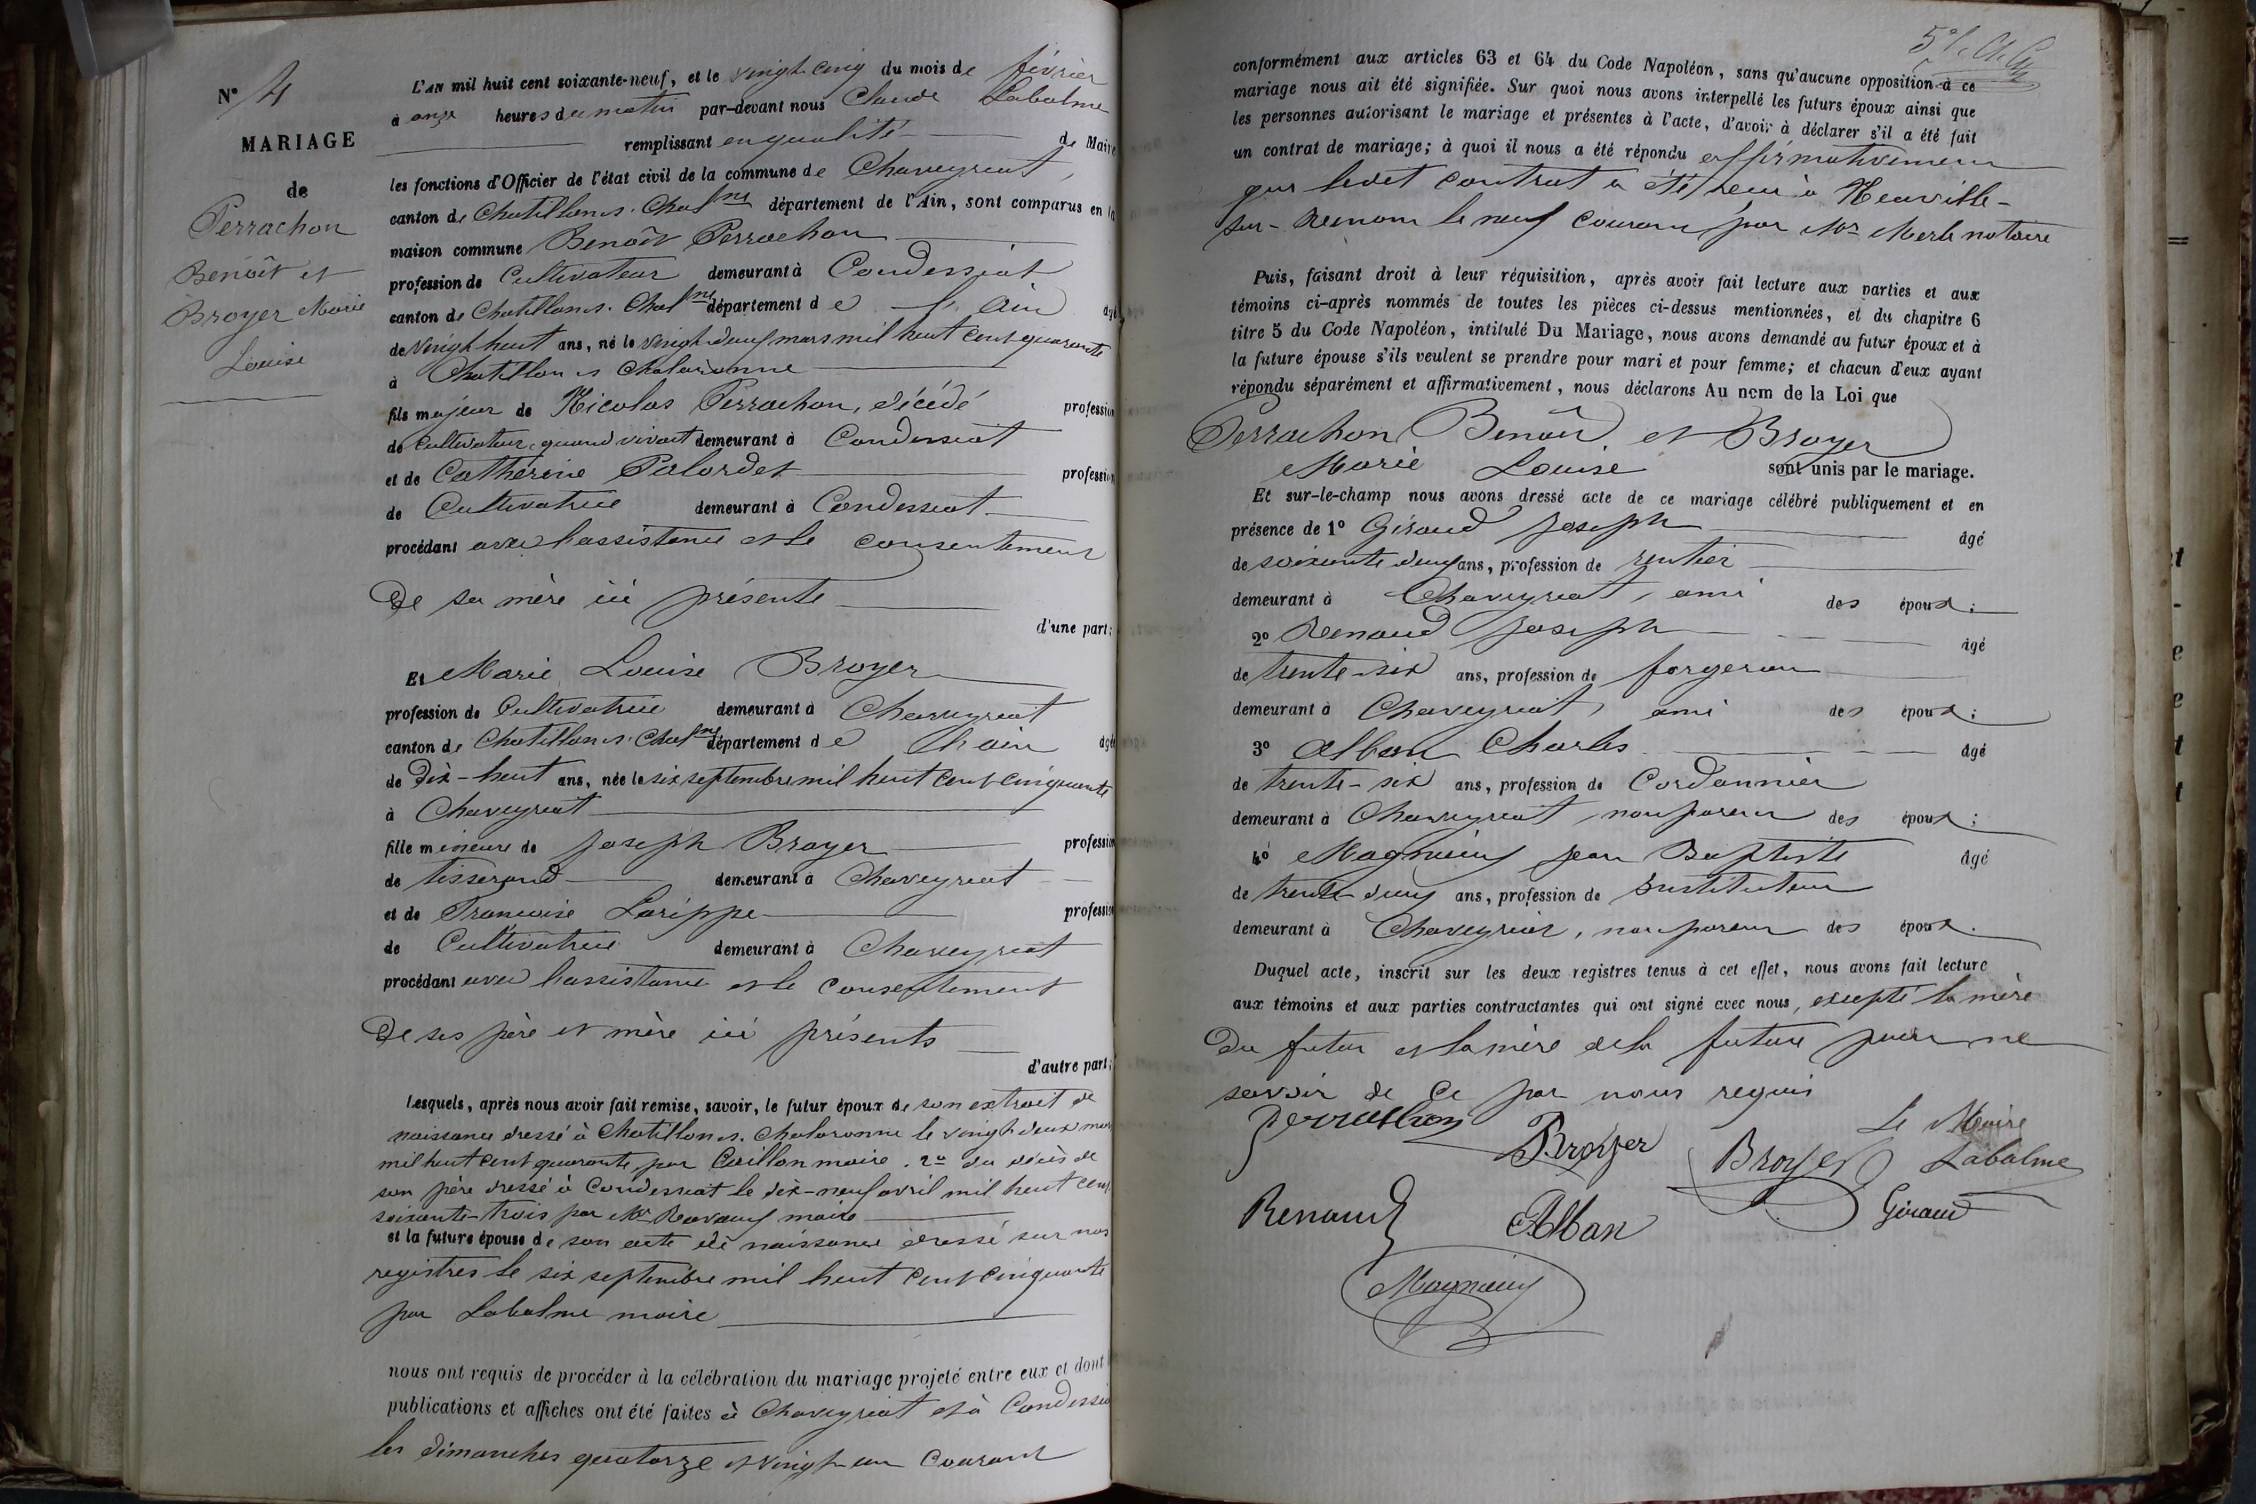 N° 4
MARIAGE
de
Perrachon
Benoît et
Broyer Marie
Louise
L'AN mil huit cent soixante-neuf, et le vingt cinq du mois de février
à onze heures du matin par-devant nous Claude Labalme
remplissant en qualité de Maire
les fonctions d'Officier de l'état civil de la commune de Chaveyriat,
canton de Chatillon s. Chalne département de l'Ain, sont comparus en la
maison commune Benoît Perrachon
profession de Cultivateur demeurant à Condessiat
canton de Chatillon s. Chalne département de l'Ain âgé
de vingt huit ans, né le vingt deux mars mil huit cent quarante
à Chatillon s Chalaronne
fils majeur de Nicolas Perrachon, décédé profession
de cultivateur, quand vivait demeurant à Condessiat
et de Catherine Palordet profession
de Cultivatrice demeurant à Condessiat
procédant avec l'assistance et le consentement
de sa mère ici présente
d'une part;
Et Marie Louise Broyer
profession de Cultivatrice demeurant à Chaveyriat
canton de Chatillon s. Chalne département de l'ain âgée
de dix-huit ans, née le six septembre mil huit cent cinquante
à Chaveyriat
fille mineure de Joseph Broyer profession
de tisserand demeurant à Chaveyriat
et de Françoise Larippe profession
de Cultivatrice demeurant à Chaveyriat
procédant avec l'assistance et le consentement
de ses père et mère ici présents
d'autre part;
Lesquels, après nous avoir fait remise, savoir, le futur époux de son extrait de
naissance dressé à Chatillon s. Chalaronne le vingt deux mars
mil huit cent quarante par Caillon maire. 2° du décès de
son père dressé à Condessiat le dix-neuf avril mil huit cent
soixante-trois par Mr maire
et la future épouse de son acte de naissance dressé sur nos
registres le six septembre mil huit cent cinquante
par Labalme maire
nous ont requis de procéder à la célébration du mariage projeté entre eux et dont
publications et affiches ont été faites à Chaveyriat et à Condessiat
les dimanches quatorze et vingt un courant
conformément aux articles 63 et 64 du Code Napoléon, sans qu'aucune opposition à ce
mariage nous ait été signifiée. Sur quoi nous avons interpellé les futurs époux ainsi que
les personnes autorisant le mariage et présentes à l'acte, d'avoir à déclarer s'il a été fait
un contrat de mariage; à quoi il nous a été répondu affirmativement
que ledit contrat a été reçu à Neuville-
sur-Renom le neuf courant par Mr Merle notaire
Puis, faisant droit à leur réquisition, après avoir fait lecture aux parties et aux
témoins ci-après nommés de toutes les pièces ci-dessus mentionnées, et du chapitre 6
titre 5 du Code Napoléon, intitulé Du Mariage, nous avons demandé au futur époux et à
la future épouse s'ils veulent se prendre pour mari et pour femme; et chacun d'eux ayant
répondu séparément et affirmativement, nous déclarons Au nom de la Loi que
Perrachon Benoît et Broyer
Marie Louise sont unis par le mariage.
Et sur-le-champ nous avons dressé acte de ce mariage célébré publiquement et en
présence de 1° Giraud Joseph âgé
de soixante deux ans, profession de rentier
demeurant à Chaveyriat, ami des époux;
2° Renaud Joseph âgé
de trente-six ans, profession de forgeron
demeurant à Chaveyriat, ami des époux;
3° Alban Charles âgé
de trente-six ans, profession de Cordonnier
demeurant à Chaveyriat, non parent des époux;
4° Magnieux Jean Baptiste âgé
de trente deux ans, profession de Instituteur
demeurant à Chaveyriat, non parent des époux.
Duquel acte, inscrit sur les deux registres tenus à cet effet, nous avons fait lecture
aux témoins et aux parties contractantes qui ont signé avec nous, excepté la mère
du futur et la mère de la future pour ne
savoir de ce par nous requis
Perrachon
Broyer
Broyer
Le Maire
Labalme
Renaud
Alban
Giraud